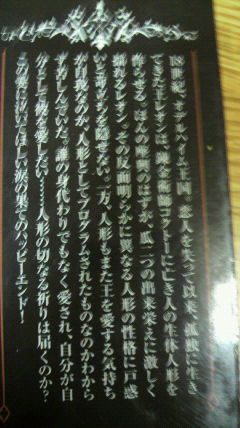 18世紀、オデルハイム王国。恋人を失って以来、孤独に生き
てきた王レオンは、錬金術師コクトーに亡き人の生体人形を
作らせる。ほんの座興のはずが、瓜二つの出来栄えに激しく
揺れるレオン。その反面明らかに異なる人形の性格に戸惑
いと苛立ちを隠せない。一方、人形もまた王を愛する気持ち
が自我なのか、人形としてプログラムされたものなのかわから
ず苦しんでいた。誰の身代わりでもなく愛され、自分が自
分として彼を愛したい…人形の切なる祈りは届くのか?
この魂は泣いて召しい涙の果てのハッピーエンド!